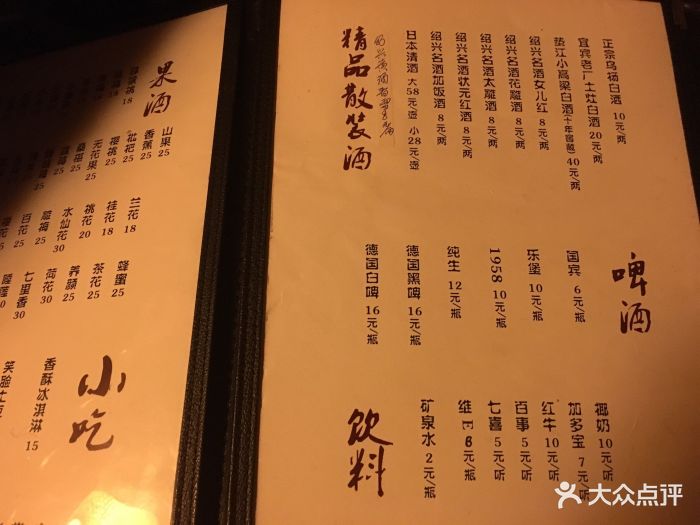 正宗乌杨白酒 10元/两
宜宾老厂土灶白酒 20元/两
垫江小高粱白酒(十年窖藏) 40元/两
绍兴名酒女儿红 8元/两
绍兴名酒花雕酒 8元/两
绍兴名酒太雕酒 8元/两
绍兴名酒状元红酒 8元/两
绍兴名酒加饭酒 8元/两
日本清酒 大58元/壶 小28元/壶
精品散装酒
啤酒
国宾 6元/瓶
乐堡 10元/瓶
1958 10元/瓶
纯生 12元/瓶
德国黑啤 16元/瓶
德国白啤 16元/瓶
椰奶 10元/听
加多宝 7元/听
红牛 10元/听
百事 5元/听
七喜 5元/听
维E 6元/瓶
矿泉水 2元/瓶
饮料
果酒
山果 25
香蕉 25
枇杷 25
樱桃 25
无花果 25
桑椹 25
兰花 18
桂花 18
桃花 20
水仙花 30
雕梅 25
百花 25
蜂蜜 25
茶花 25
养颜 25
荷花 30
七里香 30
小吃
香酥冰淇淋 15
大众点评